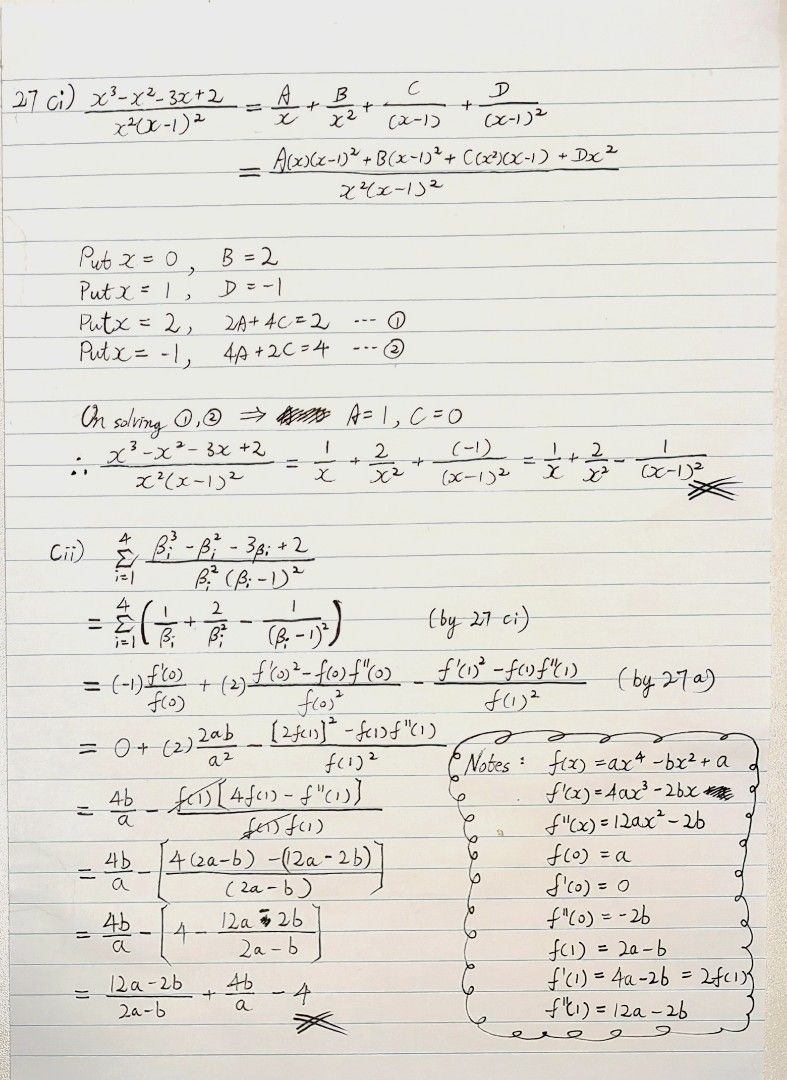 27 ci) (x³-x²-3x+2)/(x²(x-1)²) = A/x + B/x² + C/(x-1) + D/(x-1)²
= (A(x)(x-1)² + B(x-1)² + C(x²)(x-1) + Dx²)/(x²(x-1)²)
Put x = 0, B = 2
Put x = 1, D = -1
Put x = 2, 2A + 4C = 2 --- ①
Put x = -1, 4A + 2C = 4 --- ②
On solving ①,② ⇒ A = 1, C = 0
∴ (x³-x²-3x+2)/(x²(x-1)²) = 1/x + 2/x² + (-1)/(x-1)² = 1/x + 2/x² - 1/(x-1)²
Cii) Σ_{i=1}^{4} (βᵢ³ - βᵢ² - 3βᵢ + 2)/(βᵢ²(βᵢ-1)²)
= Σ_{i=1}^{4} (1/βᵢ + 2/βᵢ² - 1/(βᵢ-1)²) (by 27 ci)
= (-1) f'(0)/f(0) + (2) (f'(0)² - f(0)f''(0))/f(0)² - (f'(1)² - f(1)f''(1))/f(1)² (by 27a)
= 0 + (2) 2ab/a² - ([2f(1)]² - f(1)f''(1))/f(1)²
= 4b/a - (f(1)[4f(1) - f''(1)])/(f(1)f(1))
= 4b/a - [(4(2a-b) - (12a-2b))/(2a-b)]
= 4b/a - [4 - (12a-2b)/(2a-b)]
= (12a-2b)/(2a-b) + 4b/a - 4
Notes: f(x) = ax⁴ - bx² + a
f'(x) = 4ax³ - 2bx
f''(x) = 12ax² - 2b
f(0) = a
f'(0) = 0
f''(0) = -2b
f(1) = 2a-b
f'(1) = 4a-2b = 2f(1)
f''(1) = 12a-2b